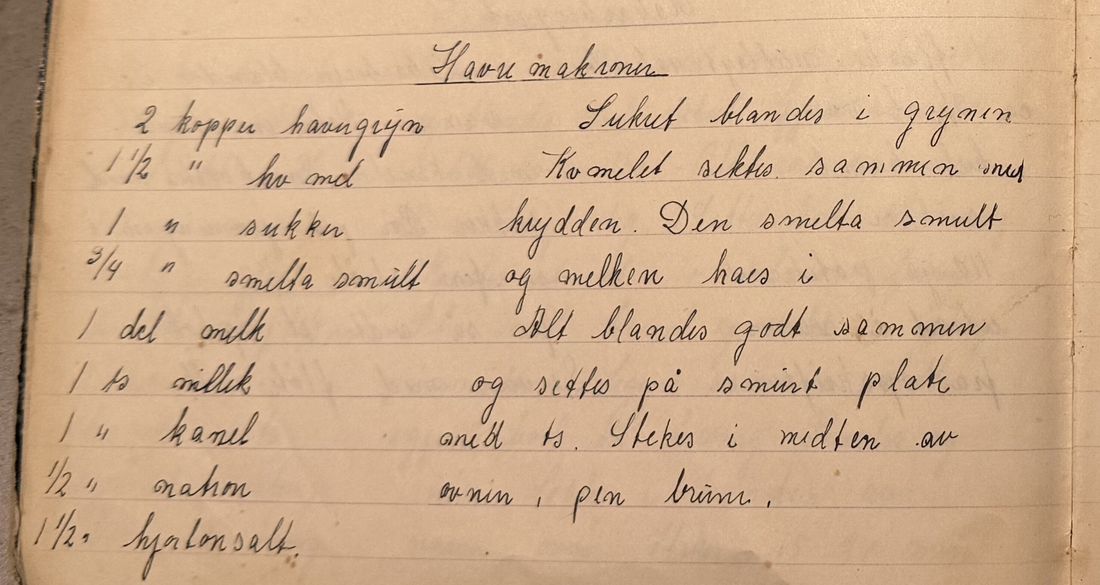 Havre makroner
2 kopper havregryn
1 1/2 " hv mel
1 " sukker
3/4 " smelta smult
1 del melk
1 ts nellik
1 " kanel
1/2 " natron
1 1/2 " hjortonsalt.
Sukret blandes i grynen
Kvmelet siktes sammen med
krydden. Den smelta smult
og melken haes i
Alt blandes godt sammen
og settes på smurt plate
med ts. Stekes i midten av
ovnen, pen brune.